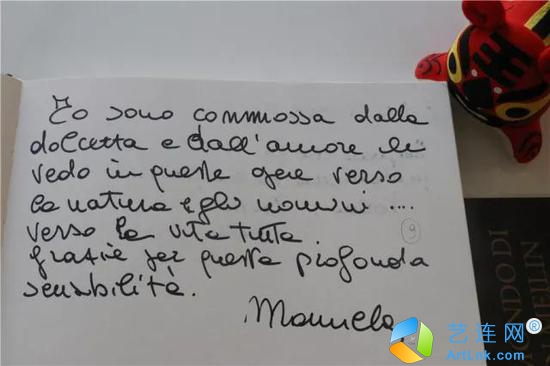 Io sono commossa dalla
dolcezza e dall'amore che
vedo in queste opere verso
la natura e gli uomini ...
verso la vita tutta.
grazie per questa profonda
sensibilità.
Manuela
9
MONDO DI
艺连网®
ArtLnk.com